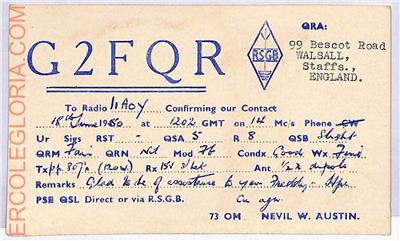 ERCOLEGLORIA.COM
G2FQR
RSGB
QRA:
99 Bescot Road
WALSALL,
Staffs.,
ENGLAND.
To Radio I1AOY Confirming our Contact
18th June 1950 at 1202 GMT on 14 Mc/s Phone CW
Ur Sigs RST - QSA 5 R 8 QSB Slight
QRM Fair QRN Nil Mod Fb Condx Good Wx Fine
Tx pp 807's (120W) Rx Ant dipole
Remarks Glad to be of assistance to you Freddy - Hpe
PSE QSL Direct or via R.S.G.B. Cu agn
73 OM NEVIL W. AUSTIN.